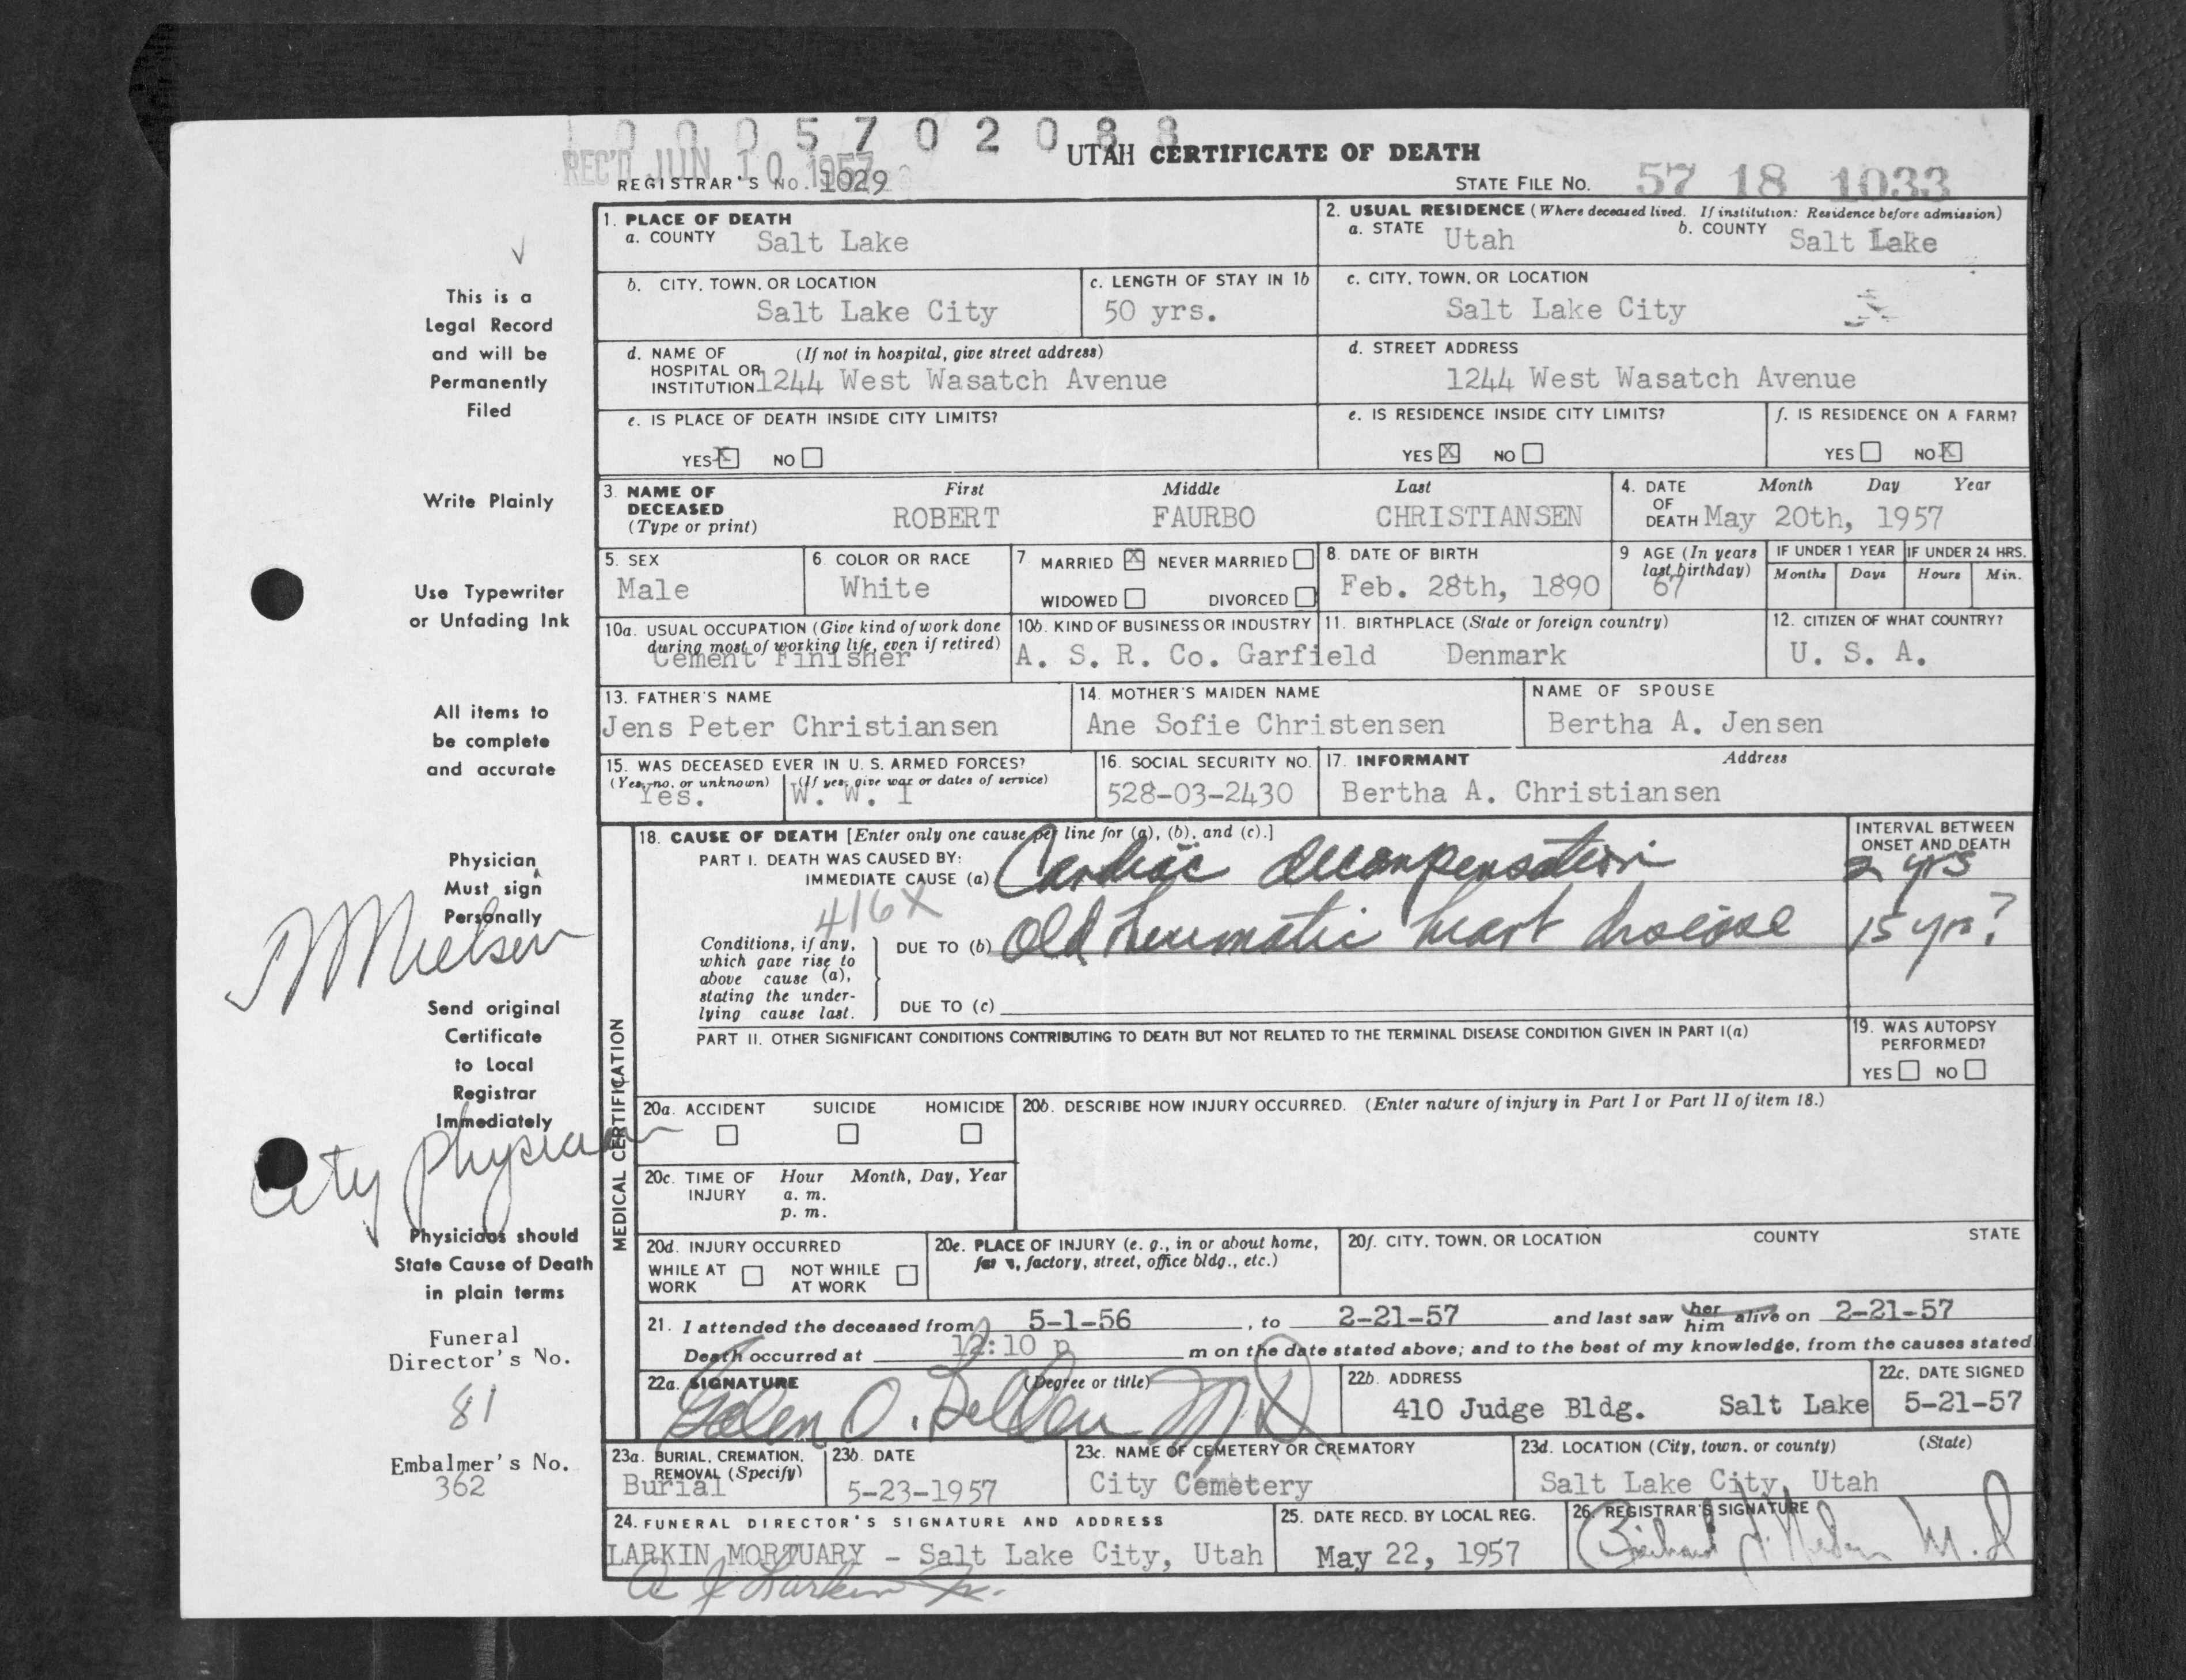 1 0 0 0 5 7 0 2 0 8 8
REC'D JUN 10 1957
UTAH CERTIFICATE OF DEATH
REGISTRAR'S NO. 1029
STATE FILE NO. 57 18 1033
1. PLACE OF DEATH
a. COUNTY Salt Lake
2. USUAL RESIDENCE (Where deceased lived. If institution: Residence before admission)
a. STATE Utah b. COUNTY Salt Lake
b. CITY, TOWN, OR LOCATION
Salt Lake City
c. LENGTH OF STAY IN 1b
50 yrs.
c. CITY, TOWN, OR LOCATION
Salt Lake City
d. NAME OF (If not in hospital, give street address)
HOSPITAL OR
INSTITUTION 1244 West Wasatch Avenue
d. STREET ADDRESS
1244 West Wasatch Avenue
e. IS PLACE OF DEATH INSIDE CITY LIMITS?
YES X NO
e. IS RESIDENCE INSIDE CITY LIMITS?
YES X NO
f. IS RESIDENCE ON A FARM?
YES NO X
3. NAME OF DECEASED (Type or print)
First Middle Last
ROBERT FAURBO CHRISTIANSEN
4. DATE OF DEATH
Month Day Year
May 20th, 1957
5. SEX
Male
6. COLOR OR RACE
White
7 MARRIED X NEVER MARRIED
WIDOWED DIVORCED
8. DATE OF BIRTH
Feb. 28th, 1890
9 AGE (In years last birthday)
67
IF UNDER 1 YEAR
Months Days
IF UNDER 24 HRS.
Hours Min.
10a. USUAL OCCUPATION (Give kind of work done
during most of working life, even if retired)
Cement Finisher
10b. KIND OF BUSINESS OR INDUSTRY
A. S. R. Co. Garfield
11. BIRTHPLACE (State or foreign country)
Denmark
12. CITIZEN OF WHAT COUNTRY?
U. S. A.
13. FATHER'S NAME
Jens Peter Christiansen
14. MOTHER'S MAIDEN NAME
Ane Sofie Christensen
NAME OF SPOUSE
Bertha A. Jensen
15. WAS DECEASED EVER IN U. S. ARMED FORCES?
(Yes, no, or unknown) (If yes, give war or dates of service)
Yes. W. W. I
16. SOCIAL SECURITY NO.
528-03-2430
17. INFORMANT Address
Bertha A. Christiansen
MEDICAL CERTIFICATION
18. CAUSE OF DEATH [Enter only one cause per line for (a), (b), and (c).]
PART I. DEATH WAS CAUSED BY:
IMMEDIATE CAUSE (a) Cardiac decompensation
INTERVAL BETWEEN
ONSET AND DEATH
2 yrs
416X
Conditions, if any,
which gave rise to
above cause (a),
stating the under-
lying cause last.
DUE TO (b) Old rheumatic heart disease
15 yrs?
DUE TO (c)
PART II. OTHER SIGNIFICANT CONDITIONS CONTRIBUTING TO DEATH BUT NOT RELATED TO THE TERMINAL DISEASE CONDITION GIVEN IN PART I(a)
19. WAS AUTOPSY
PERFORMED?
YES NO
20a. ACCIDENT SUICIDE HOMICIDE
20b. DESCRIBE HOW INJURY OCCURRED. (Enter nature of injury in Part I or Part II of item 18.)
20c. TIME OF INJURY
Hour Month, Day, Year
a. m.
p. m.
20d. INJURY OCCURRED
WHILE AT WORK NOT WHILE AT WORK
20e. PLACE OF INJURY (e. g., in or about home,
farm, factory, street, office bldg., etc.)
20f. CITY, TOWN, OR LOCATION COUNTY STATE
21. I attended the deceased from 5-1-56, to 2-21-57 and last saw her him alive on 2-21-57
Death occurred at 12:10 p m on the date stated above; and to the best of my knowledge, from the causes stated
22a. SIGNATURE (Degree or title)
Galen O. Belden MD
22b. ADDRESS
410 Judge Bldg. Salt Lake
22c. DATE SIGNED
5-21-57
23a. BURIAL, CREMATION,
REMOVAL (Specify)
Burial
23b. DATE
5-23-1957
23c. NAME OF CEMETERY OR CREMATORY
City Cemetery
23d. LOCATION (City, town, or county) (State)
Salt Lake City, Utah
24. FUNERAL DIRECTOR'S SIGNATURE AND ADDRESS
LARKIN MORTUARY - Salt Lake City, Utah
A J Larkin Jr.
25. DATE RECD. BY LOCAL REG.
May 22, 1957
26. REGISTRAR'S SIGNATURE
M.D
This is a
Legal Record
and will be
Permanently
Filed
Write Plainly
Use Typewriter
or Unfading Ink
All items to
be complete
and accurate
Physician
Must sign
Personally
Nielsen
Send original
Certificate
to Local
Registrar
Immediately
City Physician
Physicians should
State Cause of Death
in plain terms
Funeral
Director's No.
81
Embalmer's No.
362